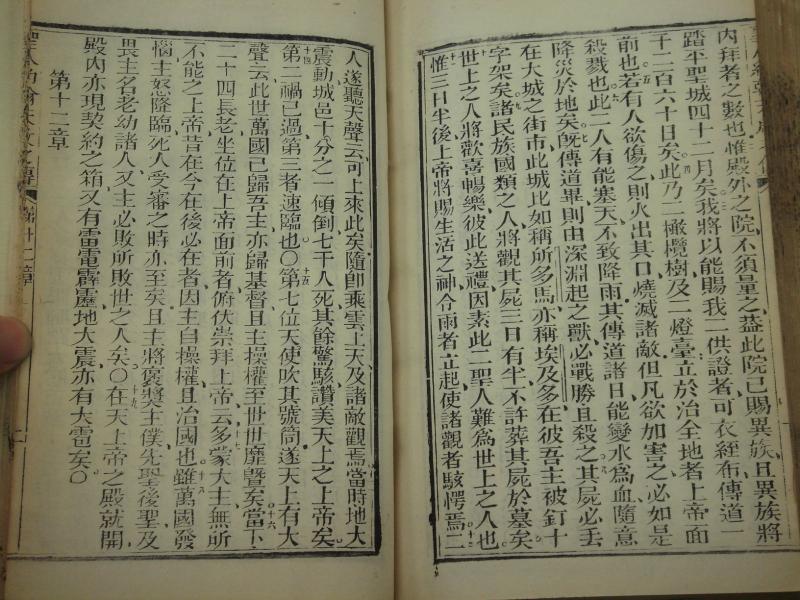 內拜者之數也惟殿外之院不須量之葢此院已賜異族且異族將
踏平聖城四十二月矣我將以能賜我二供證者可衣絰布傳道一
千二百六十日矣此乃二橄欖樹及二燈臺立於治全地者上帝面
前也若有人欲傷之則火出其口燒滅諸敵但凡欲加害之必如是
殺戮也此二人有能塞天不致降雨其傳道諸日能變水爲血隨意
降災於地矣旣傳道畢則由深淵起之獸必戰勝且殺之其屍必丟
在大城之街市此城比如稱所多馬亦稱埃及多在彼吾主被釘十
字架矣諸民族國類之人將觀其屍三日有半不許葬其屍於墓矣
世上之人將歡喜暢樂彼此送禮因素此二聖人難爲世上之人也
惟三日半後上帝將賜生活之神令兩者立起使諸觀者駭愕焉二
人遂聽天聲云可上來此矣隨卽乘雲上天及諸敵觀焉當時地大
震動城邑十分之一傾倒七千人死其餘驚駭讚美天上之上帝矣
第二禍已過第三者速臨也〇第七位天使吹其號筒遂天上有大
聲云此世萬國已歸吾主亦歸基督且主操權至世世靡曁矣當下
二十四長老坐位在上帝面前者俯伏崇拜上帝云多蒙大主無所
不能之上帝昔在今在後必在者因主自操權且治國也雖萬國發
惱主怒降臨死人受審之時亦至矣且主將褒獎主僕先聖後聖及
畏主名老幼諸人又主必敗所敗世之人矣〇在天上帝之殿就開
殿內亦現契約之箱又有雷電霹靂地大震亦有大雹矣〇
第十二章